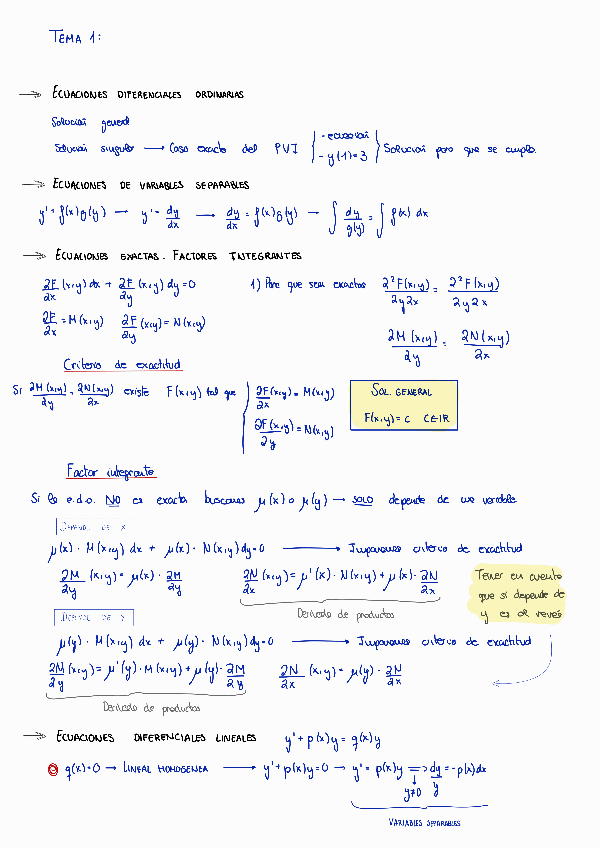 TEMA 1:
→ ECUACIONES DIFERENCIALES ORDINARIAS
Solución general
Solución singular → Caso exacto del PVI { -ecuación - y(1)=3 } Solución para que se cumpla.
→ ECUACIONES DE VARIABLES SEPARABLES
y' = f(x)g(y) → y' = dy/dx → dy/dx = f(x)g(y) → ∫ dy/g(y) = ∫ f(x) dx
→ ECUACIONES EXACTAS. FACTORES INTEGRANTES
∂F/∂x (x,y) dx + ∂F/∂y (x,y) dy = 0 1) Para que sean exactas ∂²F(x,y)/∂y∂x = ∂²F(x,y)/∂y∂x
∂F/∂x = M(x,y) ∂F/∂y (x,y) = N(x,y)
∂M(x,y)/∂y = ∂N(x,y)/∂x
Criterio de exactitud
Si ∂M(x,y)/∂y = ∂N(x,y)/∂x existe F(x,y) tal que { ∂F/∂x (x,y) = M(x,y)
∂F(x,y)/∂y = N(x,y)
SOL. GENERAL
F(x,y) = c C∈IR
Factor integrante
Si la e.d.o. NO es exacta buscamos μ(x) o μ(y) → SOLO depende de una variable
DEPENDE DE X
μ(x) · M(x,y) dx + μ(x) · N(x,y) dy = 0 → Imponemos criterio de exactitud
∂M/∂y (x,y) = μ(x) · ∂M/∂y ∂N/∂x (x,y) = μ'(x) · N(x,y) + μ(x) · ∂N/∂x
Derivada de productos
Tener en cuenta
que si depende de
y es al revés
μ(y) · M(x,y) dx + μ(y) · N(x,y) dy = 0 → Imponemos criterio de exactitud
∂M/∂y (x,y) = μ'(y) · M(x,y) + μ(y) · ∂M/∂y ∂N/∂x (x,y) = μ(y) · ∂N/∂x
Derivada de productos
→ ECUACIONES DIFERENCIALES LINEALES y' + p(x)y = q(x)y
q(x)=0 → LINEAL HOMOGENEA → y' + p(x)y = 0 → y' = p(x)y => dy/y = -p(x)dx
y≠0
VARIABLES SEPARABLES